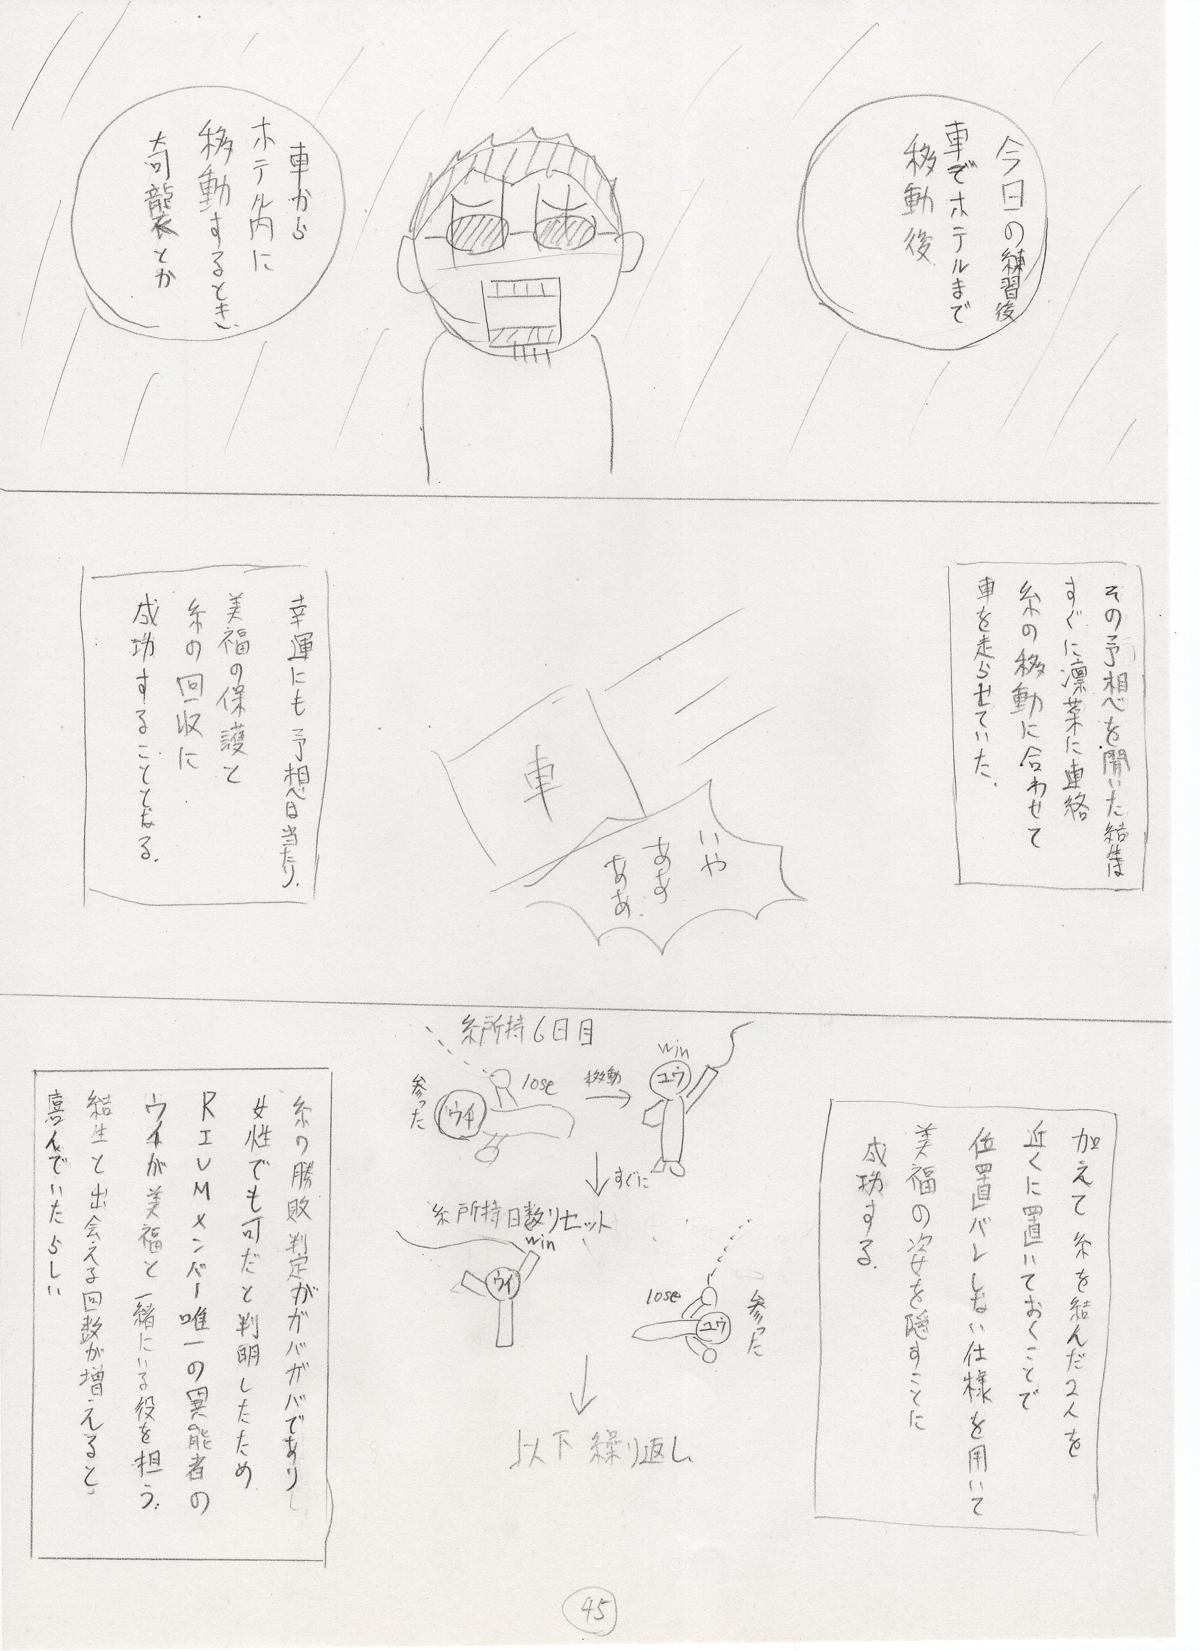 今日の練習後
車でホテルまで
移動後
車から
ホテル内に
移動するとき、
奇襲とか
その予想を聞いた結生は
すぐに凛菜に連絡
糸の移動に合わせて
車を走らせていた。
車
いや
ああ
ああ
幸運にも予想は当たり、
美福の保護と
糸の回収に
成功することとなる。
加えて糸を結んだ2人を
近くに置いておくことで
位置バレしない仕様を用いて
美福の姿を隠すことに
成功する。
糸所持6日目
win
ユウ
移動
lose
ウイ
参った
すぐに
糸所持日数リセット
win
ウイ
lose
ユウ
参った
以下繰り返し
糸の勝敗判定がガバガバであり
女性でも可だと判明したため
RIUMメンバー唯一の異能者の
ウイが美福と一緒にいる役を担う。
結生と出会える回数が増えると、
喜んでいたらしい
45